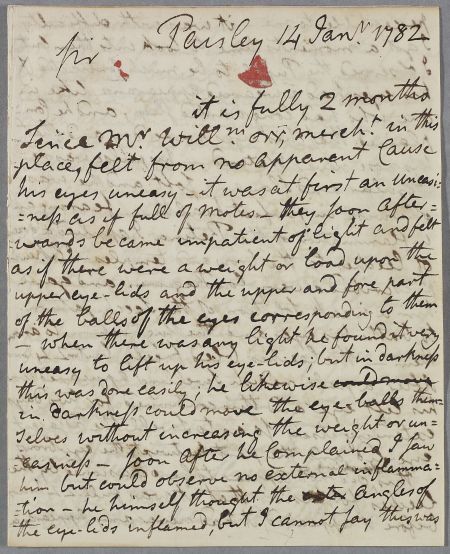 Paisley 14 Janr. 1782
Sir
it is fully 2 months
Since Mr. Willm. orr, mercht. in this
place, felt from no apparent Cause
his eyes uneasy – it was at first an uneasi=
=ness as if full of motes – they soon after=
=wards became impatient of light and felt
as if there were a weight or load upon the
upper eye-lids and the upper and fore part
of the balls of the eyes corresponding to them
– when there was any light he found it very
uneasy to lift up his eye-lids; but in darkness
this was done easily; he likewise could move
in darkness could move the eye-balls them=
selves without increasing the weight or un=
easiness – Soon after he complained, I saw
him but could observe no external inflamma=
=tion – he himself thought the angles of
the eye-lids inflamed, but I cannot say this was